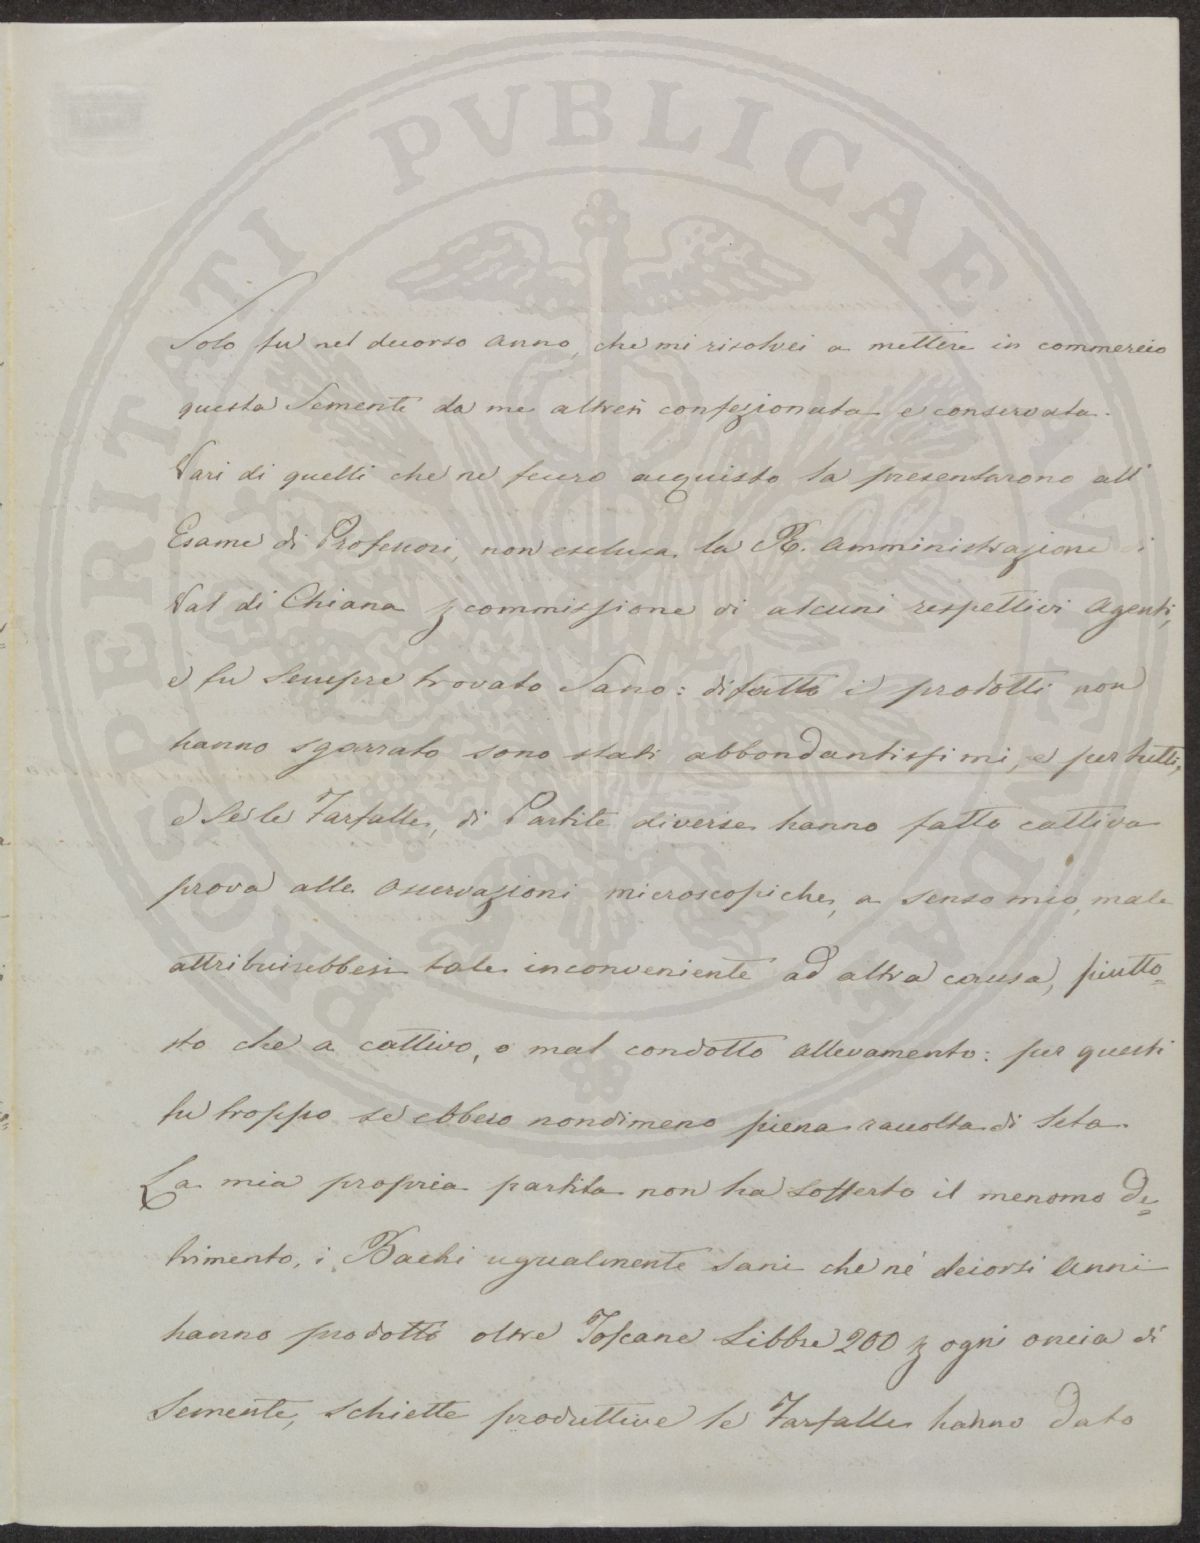 PROSPERITATI PVBLICAE AVGENDAE
Solo fu nel decorso anno, che mi risolvei a mettere in commercio
questa Semente da me altresì confezionata e conservata.
Vari di quelli che ne fecero acquisto la presentarono all'
Esame di Professori, non esclusa la R. Amministrazione di
Val di Chiana p commissione di alcuni respettivi Agenti,
e fu sempre trovato Sano: difatto i prodotti non
hanno sgarrato sono stati abbondantissimi, e per tutti,
e se le Farfalle, di Partite diverse hanno fatto cattiva
prova alle osservazioni microscopiche, a senso mio, male
attribuirebbesi tale inconveniente ad altra causa, piutto=
sto che a cattivo, o mal condotto allevamento: per questi
fu troppo se ebbero nondimeno piena raccolta di Seta.
La mia propria partita non ha sofferto il menomo de=
trimento, i Bachi ugualmente sani che né decorsi Anni
hanno prodotto oltre Toscane Libbre 200 p ogni oncia di
Semente, schiette produttive le Farfalle hanno dato